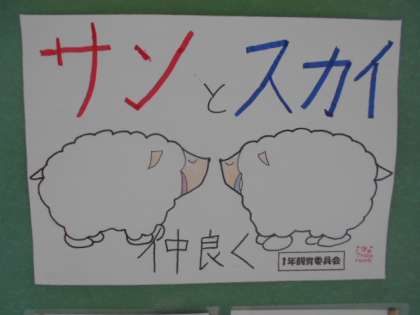 サンとスカイ
仲良く
1年飼育委員会